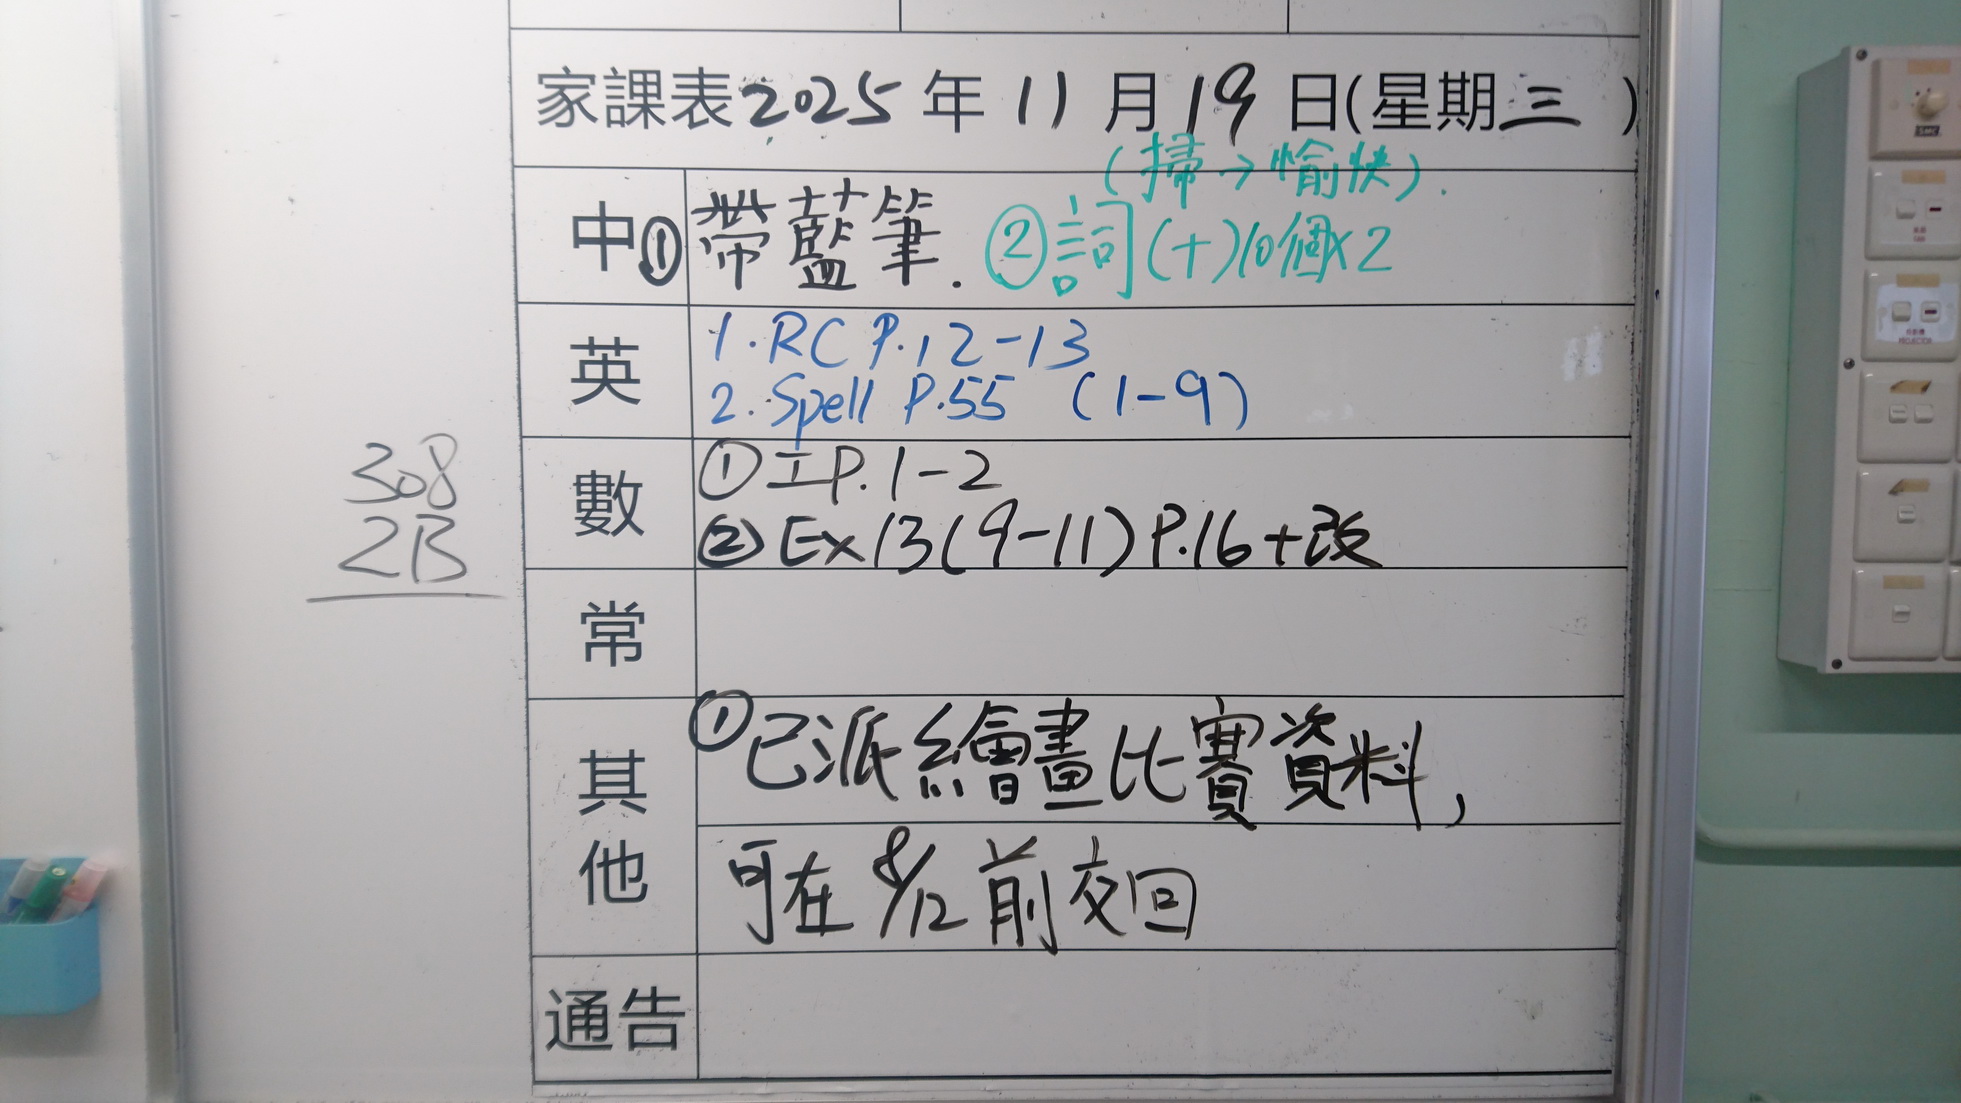 家課表2025年11月19日(星期三)
(掃→愉快).
中 ①帶藍筆. ②詞(十)10個×2
英 1. RC P.12-13
2. Spell P.55 (1-9)
數 ①工P.1-2
②Ex13(9-11)P.16+改
常
其他 ①已派繪畫比賽資料,
可在8/12前交回
通告
308
2B